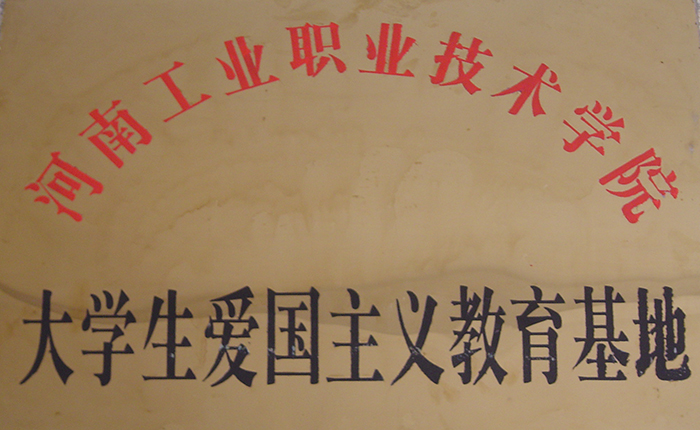 河南工业职业技术学院
大学生爱国主义教育基地